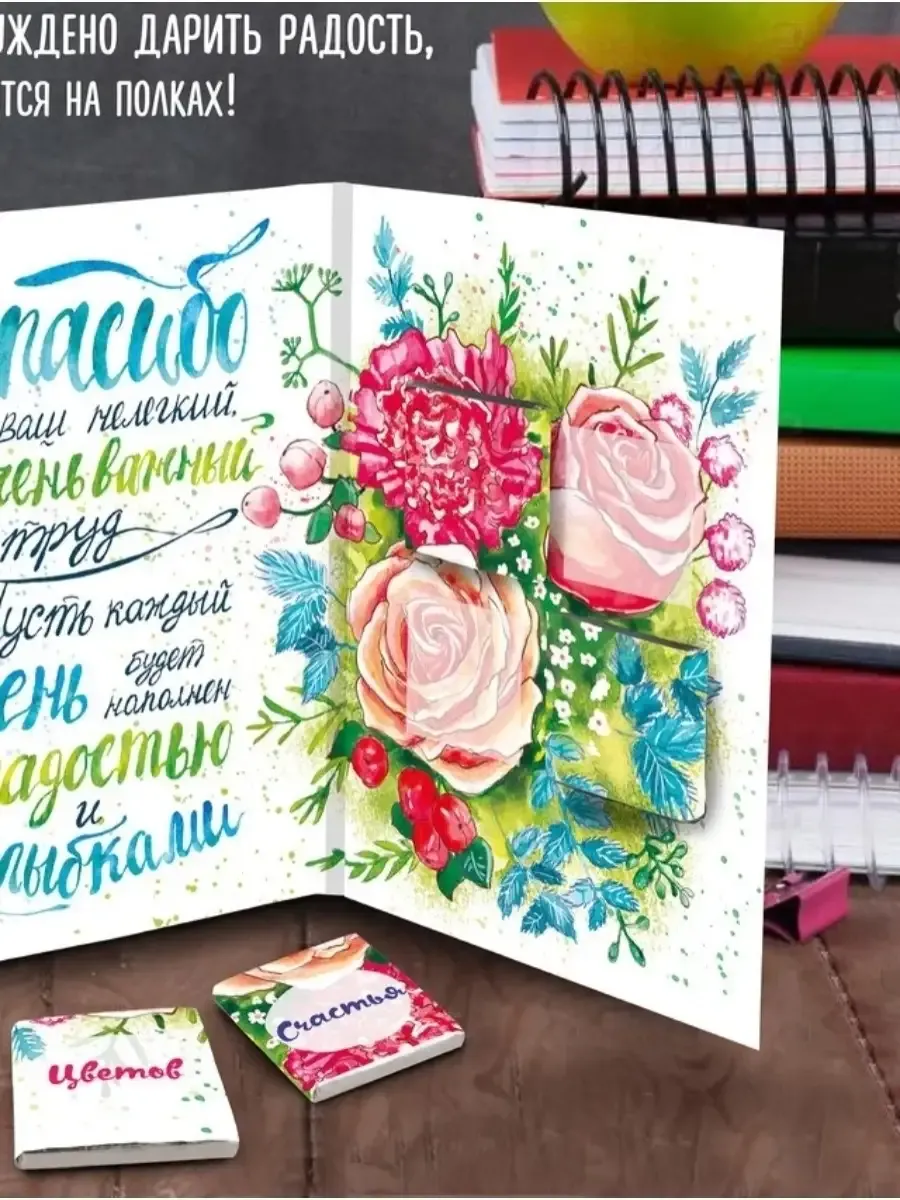 УЖДЕНО ДАРИТЬ РАДОСТЬ,
ТСЯ НА ПОЛКАХ!
пасибо
ваш нелегкий,
чень важный
труд
Пусть каждый
ень будет
наполнен
адостью
и
лыбками
Цветов
Счастья